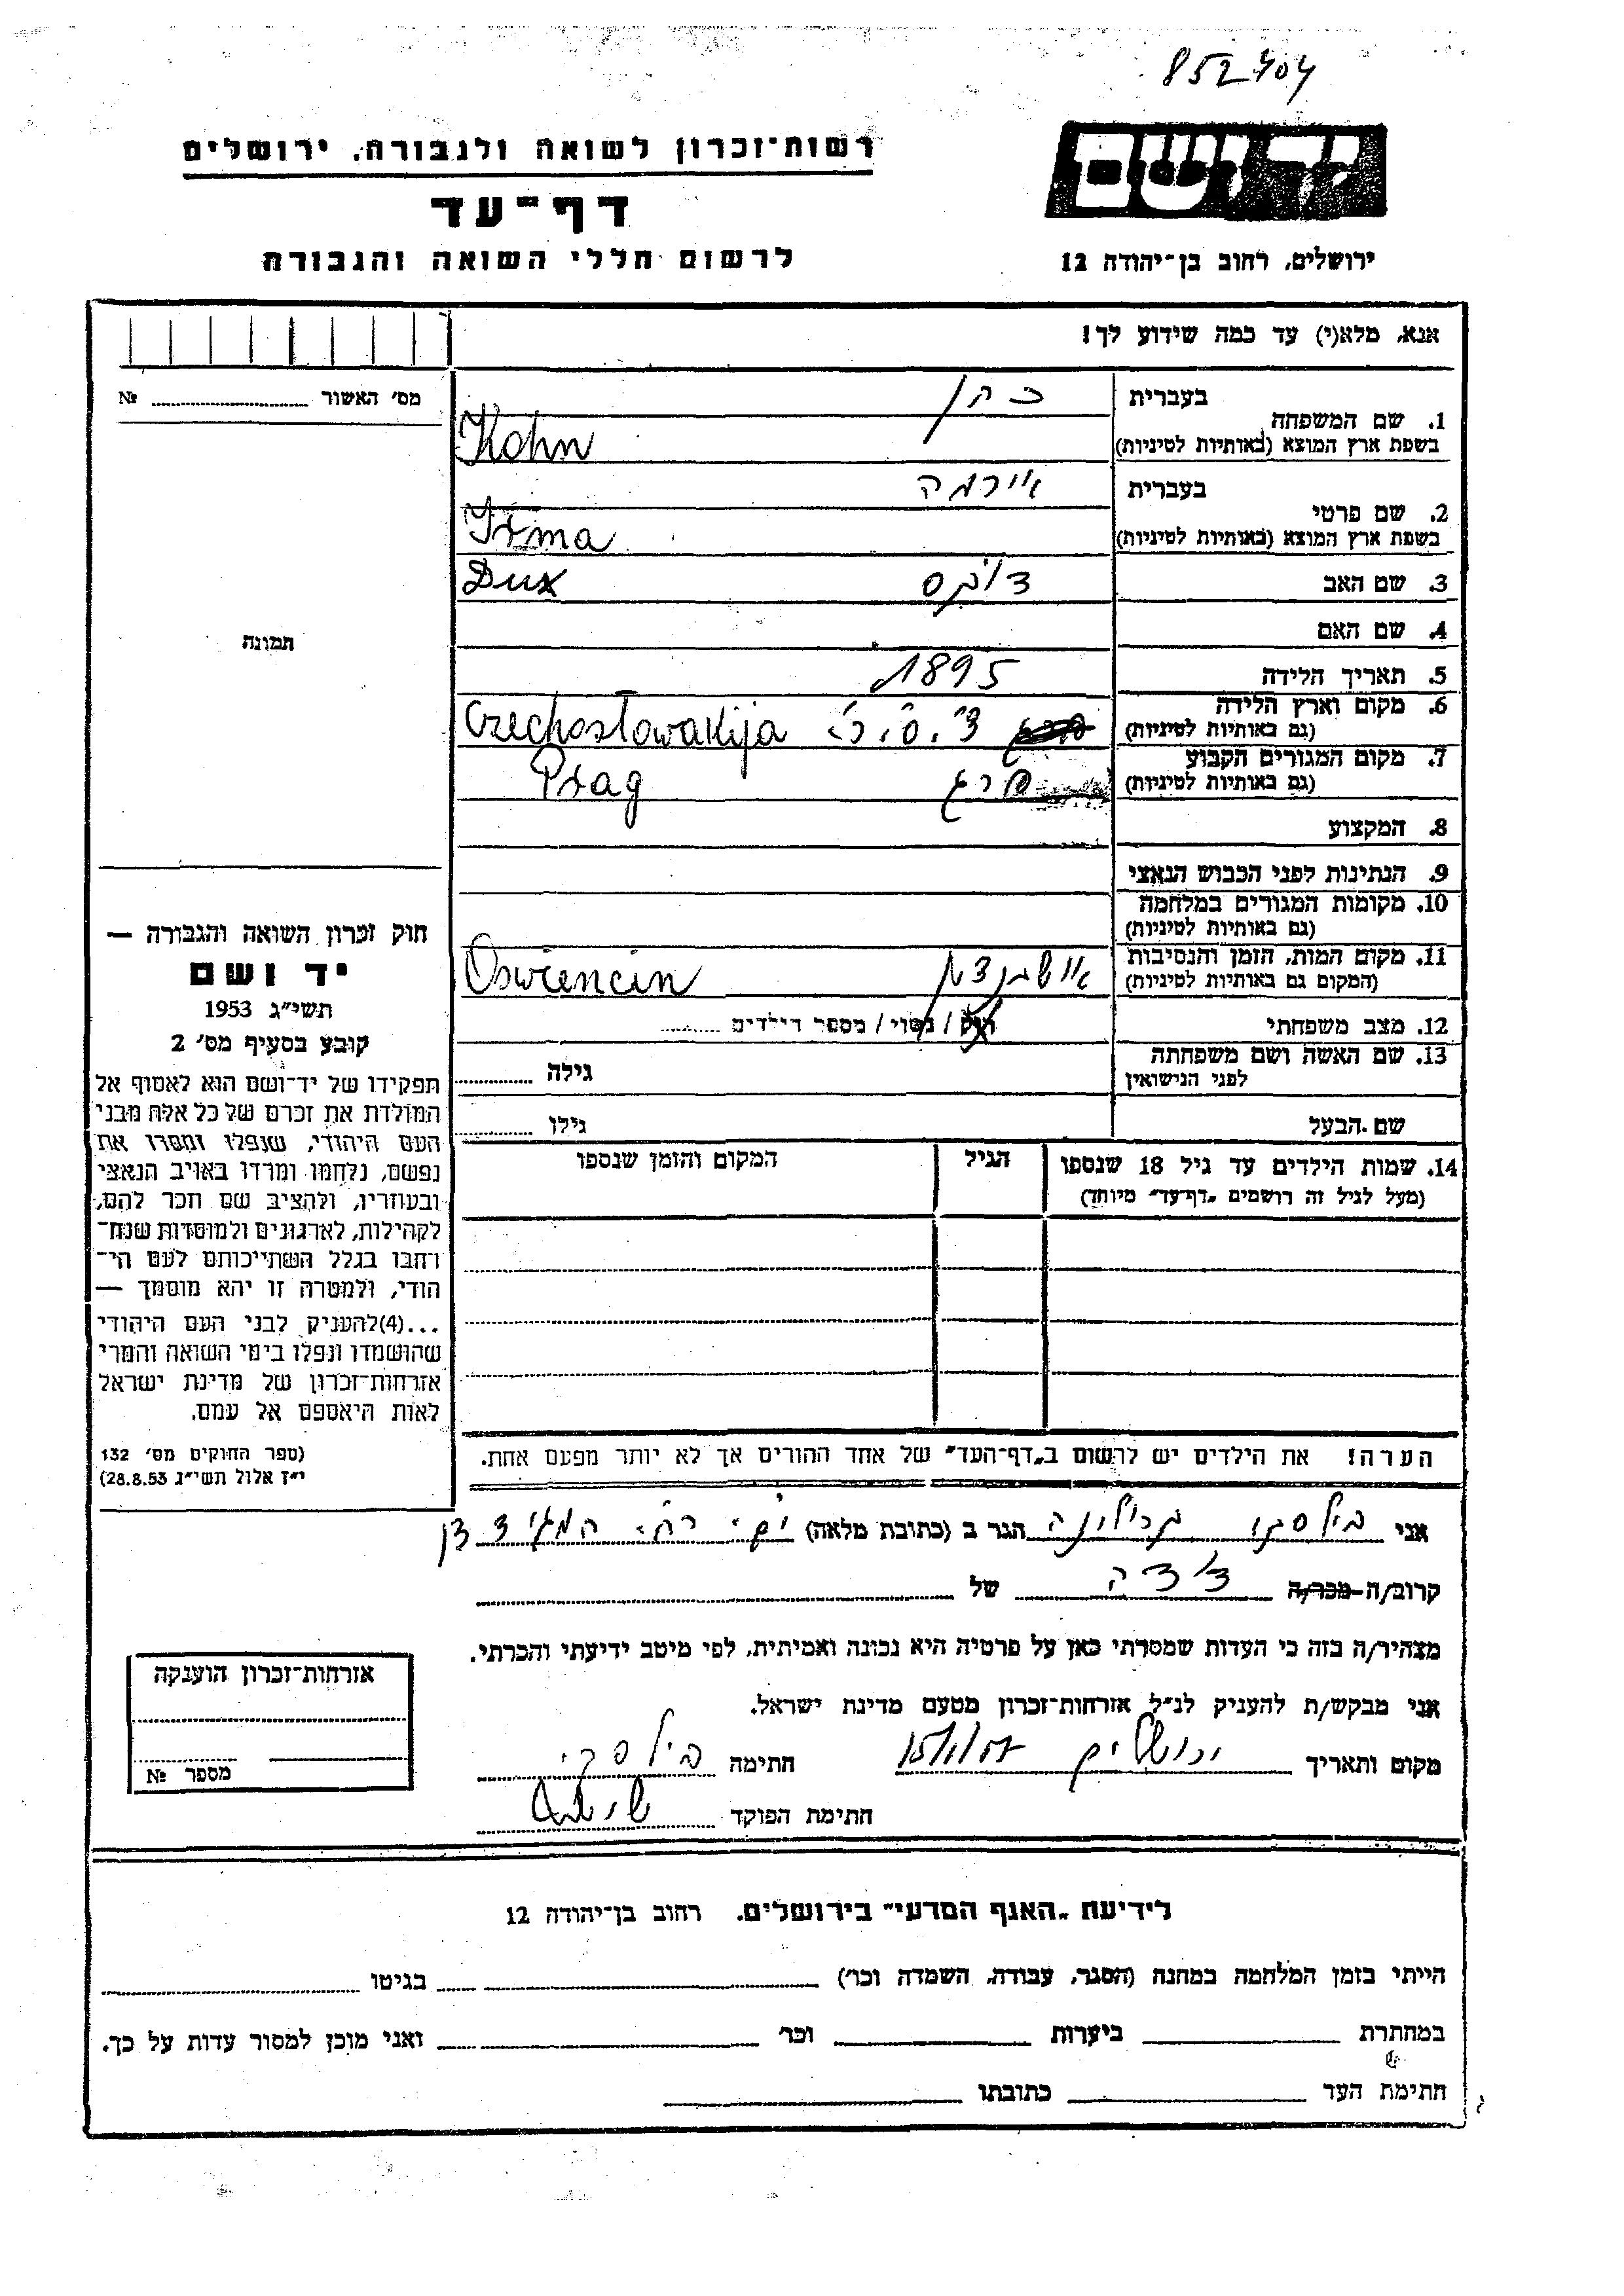 852404
יד ושם
רשות־זכרון לשואה ולגבורה, ירושלים
דף־עד
לרשום חללי השואה והגבורה
ירושלים, רחוב בן־יהודה 12
אנא, מלא(י) עד כמה שידוע לך!
מס׳ האשור № 
תמונה
1. שם המשפחה
בעברית כהן
בשפת ארץ המוצא (באותיות לטיניות) Kohn
2. שם פרטי
בעברית אירמה
בשפת ארץ המוצא (באותיות לטיניות) Irma
3. שם האב דוקס Dux
4. שם האם
5. תאריך הלידה 1895
6. מקום וארץ הלידה צ׳.ס.ר. Czechosłowakija
(גם באותיות לטיניות)
7. מקום המגורים הקבוע פרג Prag
(גם באותיות לטיניות)
8. המקצוע
9. הנתינות לפני הכבוש הנאצי
10. מקומות המגורים במלחמה
(גם באותיות לטיניות)
11. מקום המות, הזמן והנסיבות Oswiencin
(המקום גם באותיות לטיניות)
12. מצב משפחתי רוק / נשוי / מספר הילדים
13. שם האשה ושם משפחתה גילה
לפני הנישואין
שם הבעל גילו
14. שמות הילדים עד גיל 18 שנספו הגיל המקום והזמן שנספו
(מעל לגיל זה רושמים „דף־עד״ מיוחד)
חוק זכרון השואה והגבורה —
יד ושם
תשי״ג 1953
קובע בסעיף מס׳ 2
תפקידו של יד־ושם הוא לאסוף אל
המולדת את זכרם של כל אלה מבני
העם היהודי, שנפלו ומסרו את
נפשם, נלחמו ומרדו באויב הנאצי
ובעוזריו, ולהציב שם וזכר להם,
לקהילות, לארגונים ולמוסדות שנח־
רבו בגלל השתייכותם לעם הי־
הודי, ולמטרה זו יהא מוסמך —
...(4)להעניק לבני העם היהודי
שהושמדו ונפלו בימי השואה והמרי
אזרחות־זכרון של מדינת ישראל
לאות היאספם אל עמם.
(ספר החוקים מס׳ 132
י״ז אלול תשי״ג 28.8.53)
הערה! את הילדים יש לרשום ב„דף־העד״ של אחד ההורים אך לא יותר מפעם אחת.
אני הגר ב (כתובת מלאה)
קרוב/ה מכר/ה דודה של
מצהיר/ה בזה כי העדות שמסרתי כאן על פרטיה היא נכונה ואמיתית, לפי מיטב ידיעתי והכרתי.
אני מבקש/ת להעניק לנ״ל אזרחות־זכרון מטעם מדינת ישראל.
מקום ותאריך ירושלים חתימה
חתימת הפוקד
אזרחות־זכרון הוענקה
מספר №
לידיעת „האגף המדעי״ בירושלים. רחוב בן־יהודה 12
הייתי בזמן המלחמה במחנה (הסגר, עבודה, השמדה וכו׳) בגיטו
במחתרת ביערות וכו׳ ואני מוכן למסור עדות על כך.
חתימת העד כתובתו